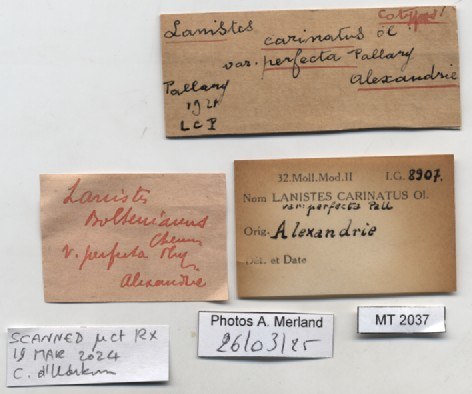 Cotypes!
Lanistes carinatus Ol.
var. perfecta Pallary
Pallary Alexandrie
1921
L C I
Lanistes
Boltenianus
Chemn
v. perfecta
Alexandrie
32.Moll.Mod.II I.G. 8907.
Nom LANISTES CARINATUS Ol.
var: perfectus Pall
Orig. Alexandrie
Dét. et Date
SCANNED µct RX
19 MAR 2024
C.
Photos A. Merland
26/03/25
MT 2037